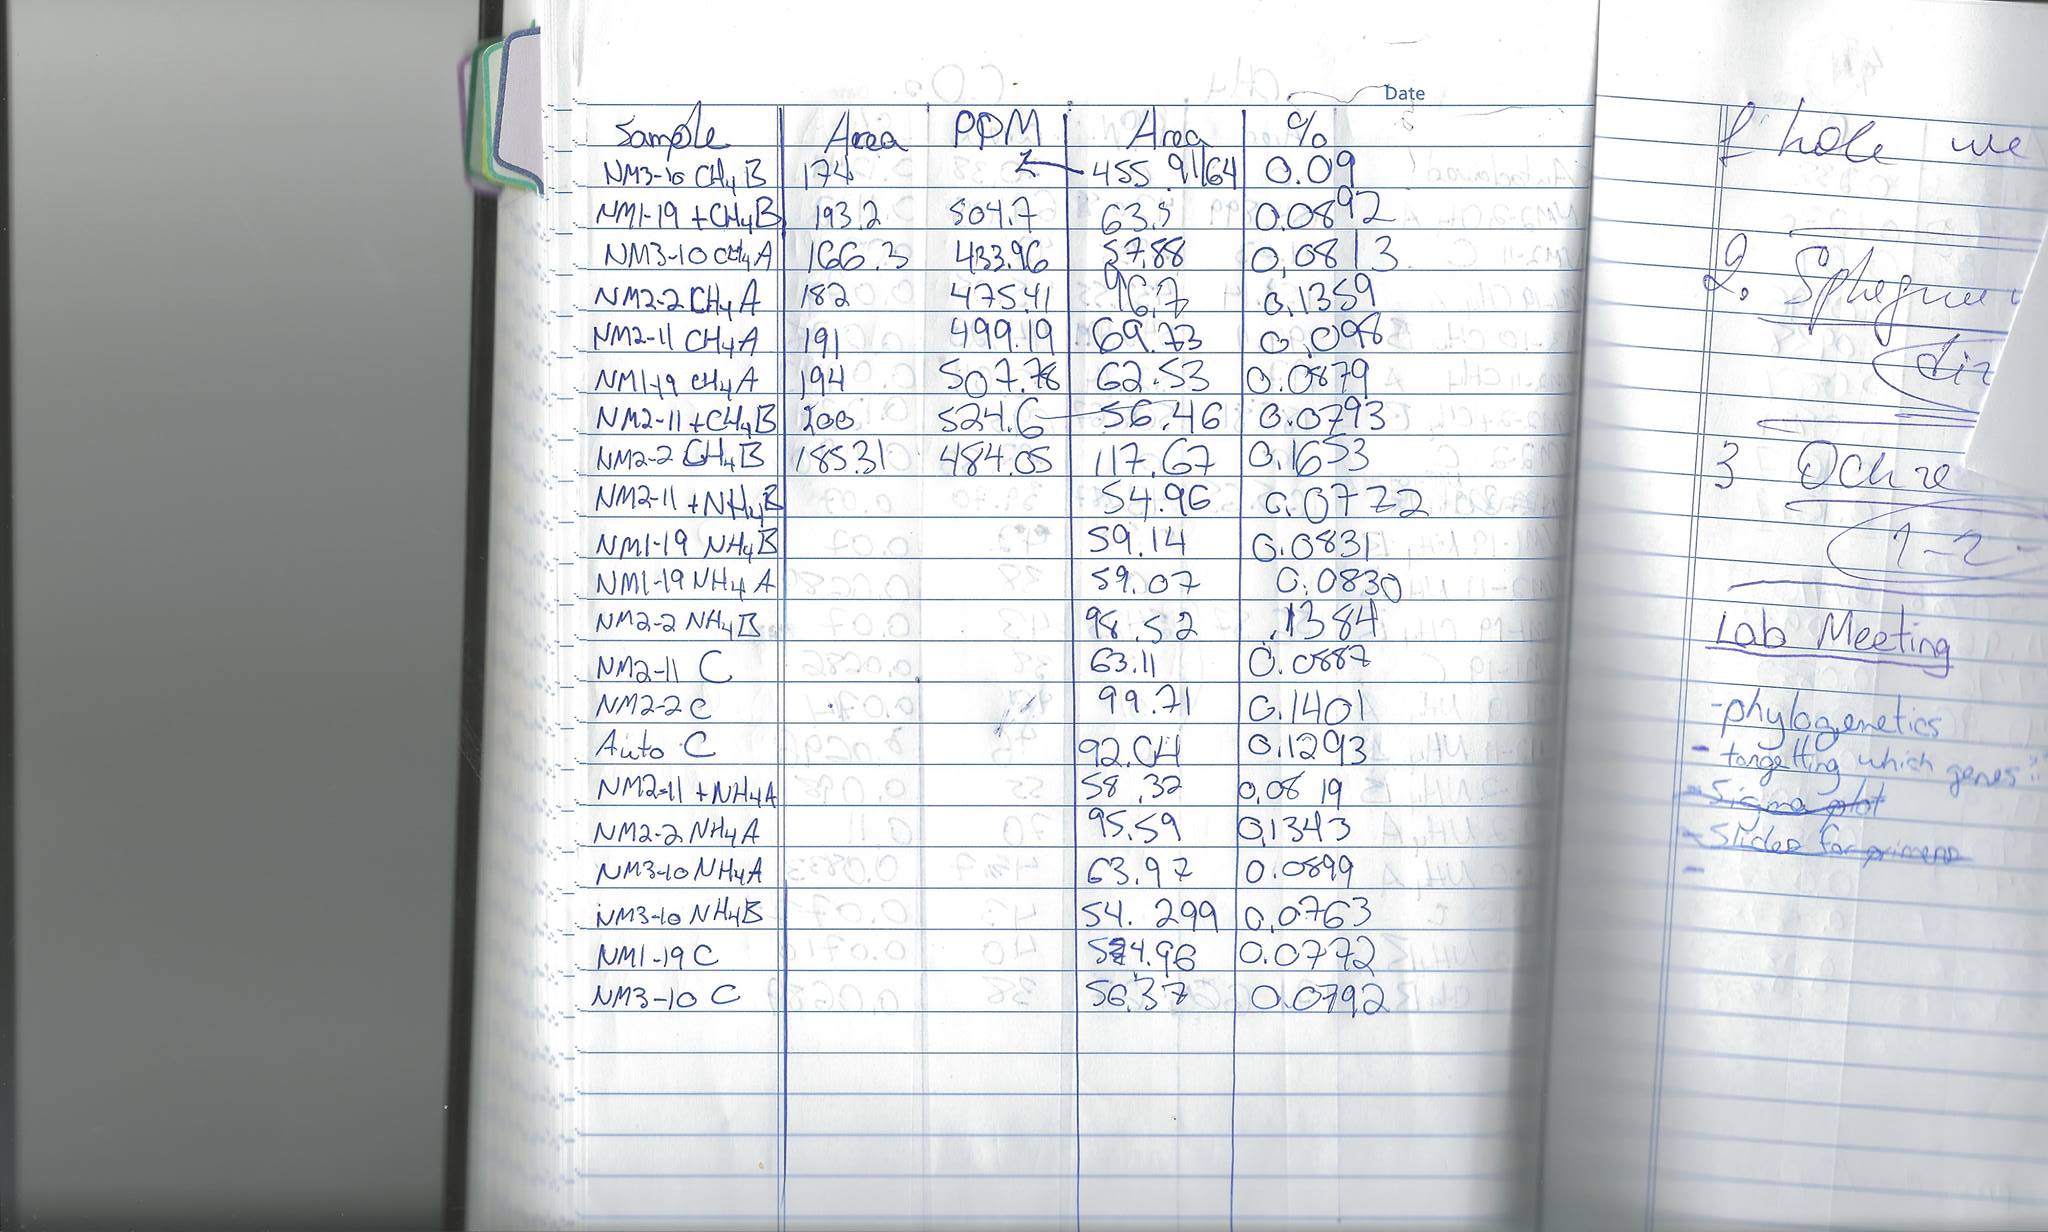 Date
Sample Area PPM Area %
NM3-10 CH4 B 174 455.91 64 0.09
NM1-19 +CH4B 193.2 504.7 63.5 0.0892
NM3-10 CH4A 166.3 433.96 57.88 0.0813
NM2-2 CH4 A 182 475.41 96.7 0.1359
NM2-11 CH4A 191 499.19 69.73 0.098
NM1-19 CH4A 194 507.78 62.53 0.0879
NM2-11 +CH4B 200 524.6 56.46 0.0793
NM2-2 CH4B 185.31 484.05 117.67 0.1653
NM2-11 +NH4B 54.96 0.0772
NM1-19 NH4B 59.14 0.0831
NM1-19 NH4 A 59.07 0.0830
NM2-2 NH4B 98.52 .1384
NM2-11 C 63.11 0.0887
NM2-2 C 99.71 0.1401
Auto C 92.04 0.1293
NM2-11 +NH4A 58.32 0.0819
NM2-2 NH4A 95.59 0.1343
NM3-10 NH4A 63.97 0.0899
NM3-10 NH4B 54.299 0.0763
NM1-19 C 54.96 0.0772
NM3-10 C 56.37 0.0792
hole we
2. Sphegnu
3 Ochre
1-2
Lab Meeting
-phylogenetics
- targetting which genes
- Sigma plot
- Slides for primers
-